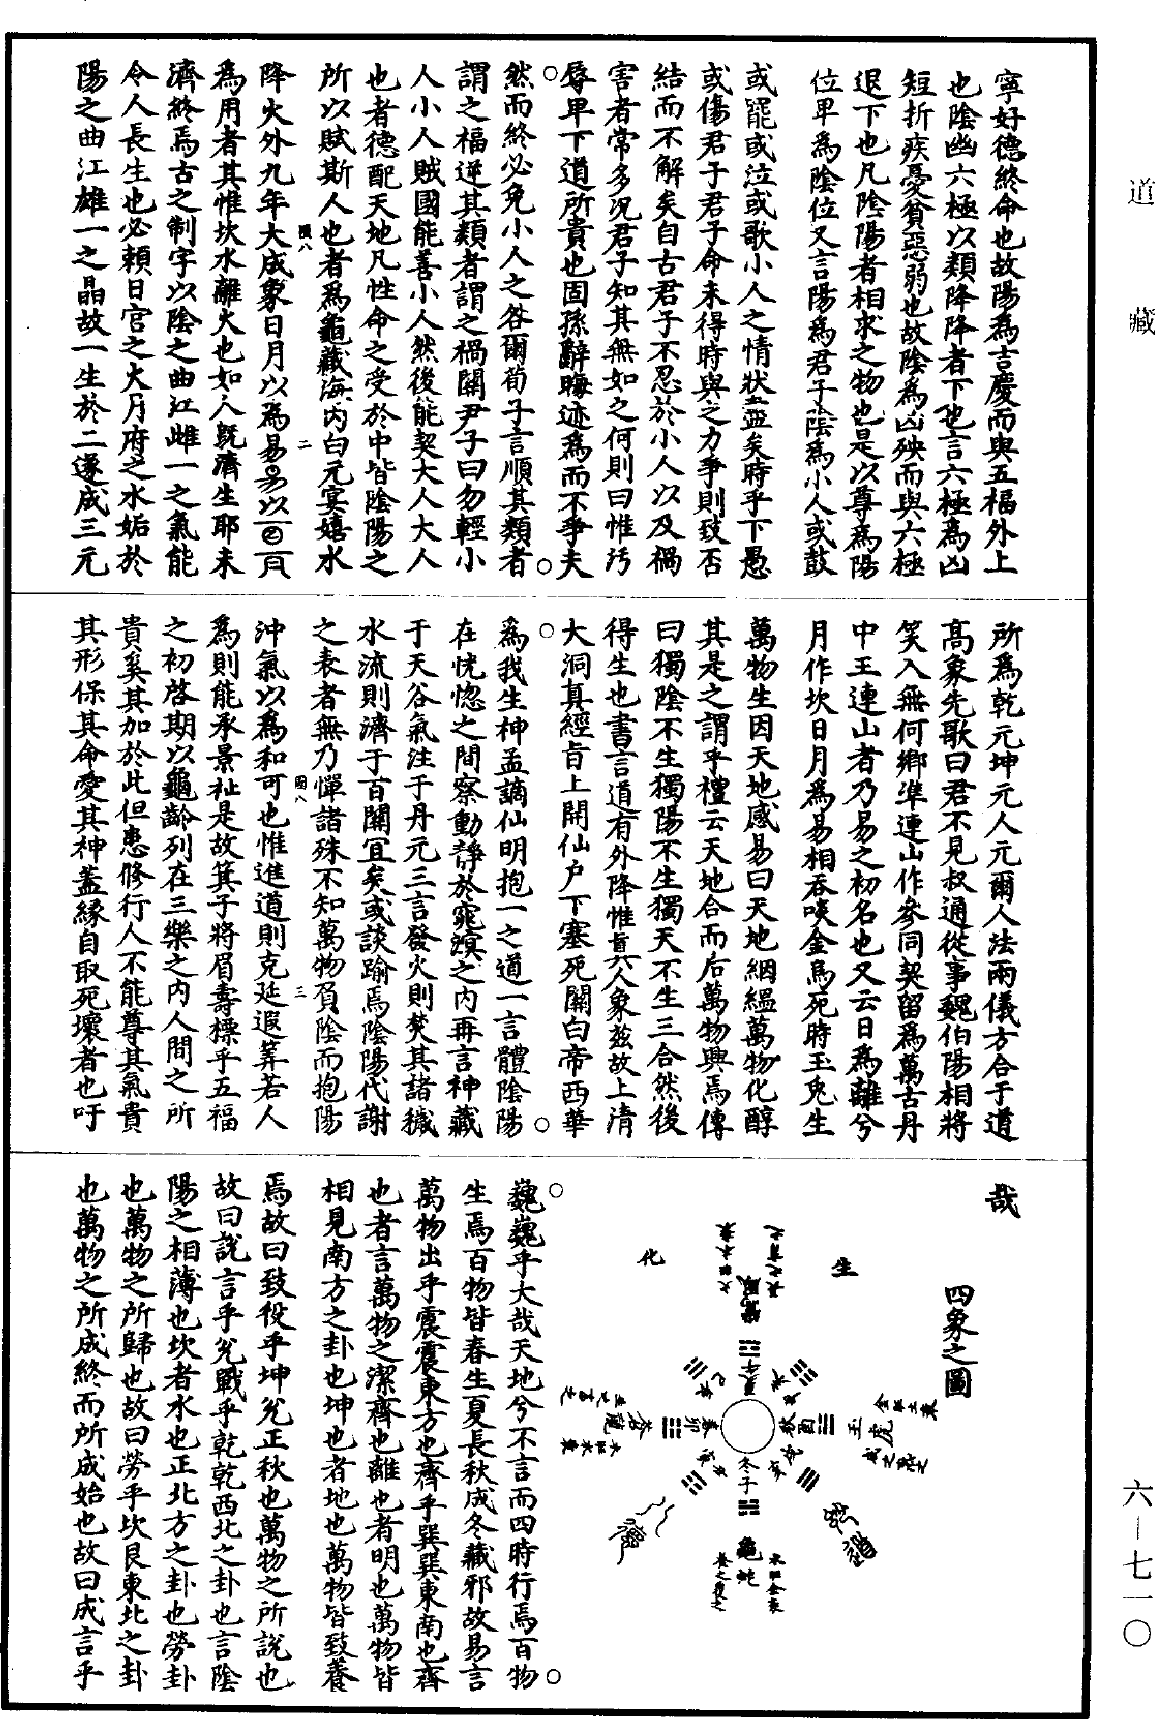 道藏
寧好德終命也故陽為吉慶而與五福外上
也陰幽六極以類降降者下也言六極為凶
短折疾憂貧惡弱也故陰為凶殃而與六極
退下也凡陰陽者相求之物也是以尊為陽
位卑為陰位又言陽為君子陰為小人或鼓
或寵或泣或歌小人之情狀盡矣時乎下愚
或傷君子君子命未得時與之力爭則致否
結而不解矣自古君子不忍於小人以及禍
害者常多況君子知其無如之何則曰惟污
辱卑下道所貴也固孫辭晦迹為而不爭夫
然而終必免小人之咎爾荀子言順其類者
謂之福逆其類者謂之禍關尹子曰勿輕小
人小人賊國能善小人然後能契大人大人
也者德配天地凡性命之受於中皆陰陽之
所以賦斯人也者為龜藏海內白元寞嬉水
二
降火外九年大成象日月以為易易以
為用者其惟坎水離火也如人既濟生耶未
濟終焉古之制字以陰之曲江雌一之氣能
令人長生也必賴日宮之火月府之水姤於
陽之曲江雄一之晶故一生於二遂成三元
所為乾元坤元人元爾人法兩儀方合于道
高象先歌曰君不見叔通從事魏伯陽相將
笑入無何鄉準連山作參同契留為萬古丹
中王連山者乃易之初名也又云日為離兮
月作坎日月為易相吞啖金烏死時玉兔生
萬物生因天地感易曰天地絪縕萬物化醇
其是之謂乎禮云天地合而后萬物興焉傳
曰獨陰不生獨陽不生獨天不生三合然後
得生也書言道有外降惟真人象茲故上清
大洞真經旨上開仙戶下塞死關白帝西華
為我生神孟謫仙明抱一之道一言體陰陽
在恍惚之間察動靜於窈溟之內再言神藏
于天谷氣注于丹元三言發火則焚其諸穢
水流則濟于百關宜矣或談踰焉陰陽代謝
之表者無乃憚諸殊不知萬物負陰而抱陽
三
沖氣以為和可也惟進道則克延遐筭若人
為則能承景祉是故箕子將眉壽標乎五福
之初啓期以龜齡列在三樂之內人間之所
貴奚其加於此但患修行人不能尊其氣貴
其形保其命愛其神蓋緣自取死壞者也吁
哉
四象之圖
生
化
夏午
秋酉
冬子
春卯
龜蛇
虎
巍巍乎大哉天地兮不言而四時行焉百物
生焉百物皆春生夏長秋成冬藏邪故易言
萬物出乎震震東方也齊乎巽巽東南也齊
也者言萬物之潔齊也離也者明也萬物皆
相見南方之卦也坤也者地也萬物皆致養
焉故曰致役乎坤兌正秋也萬物之所說也
故曰說言乎兌戰乎乾乾西北之卦也言陰
陽之相薄也坎者水也正北方之卦也勞卦
也萬物之所歸也故曰勞乎坎艮東北之卦
也萬物之所成終而所成始也故曰成言乎
六—七一〇